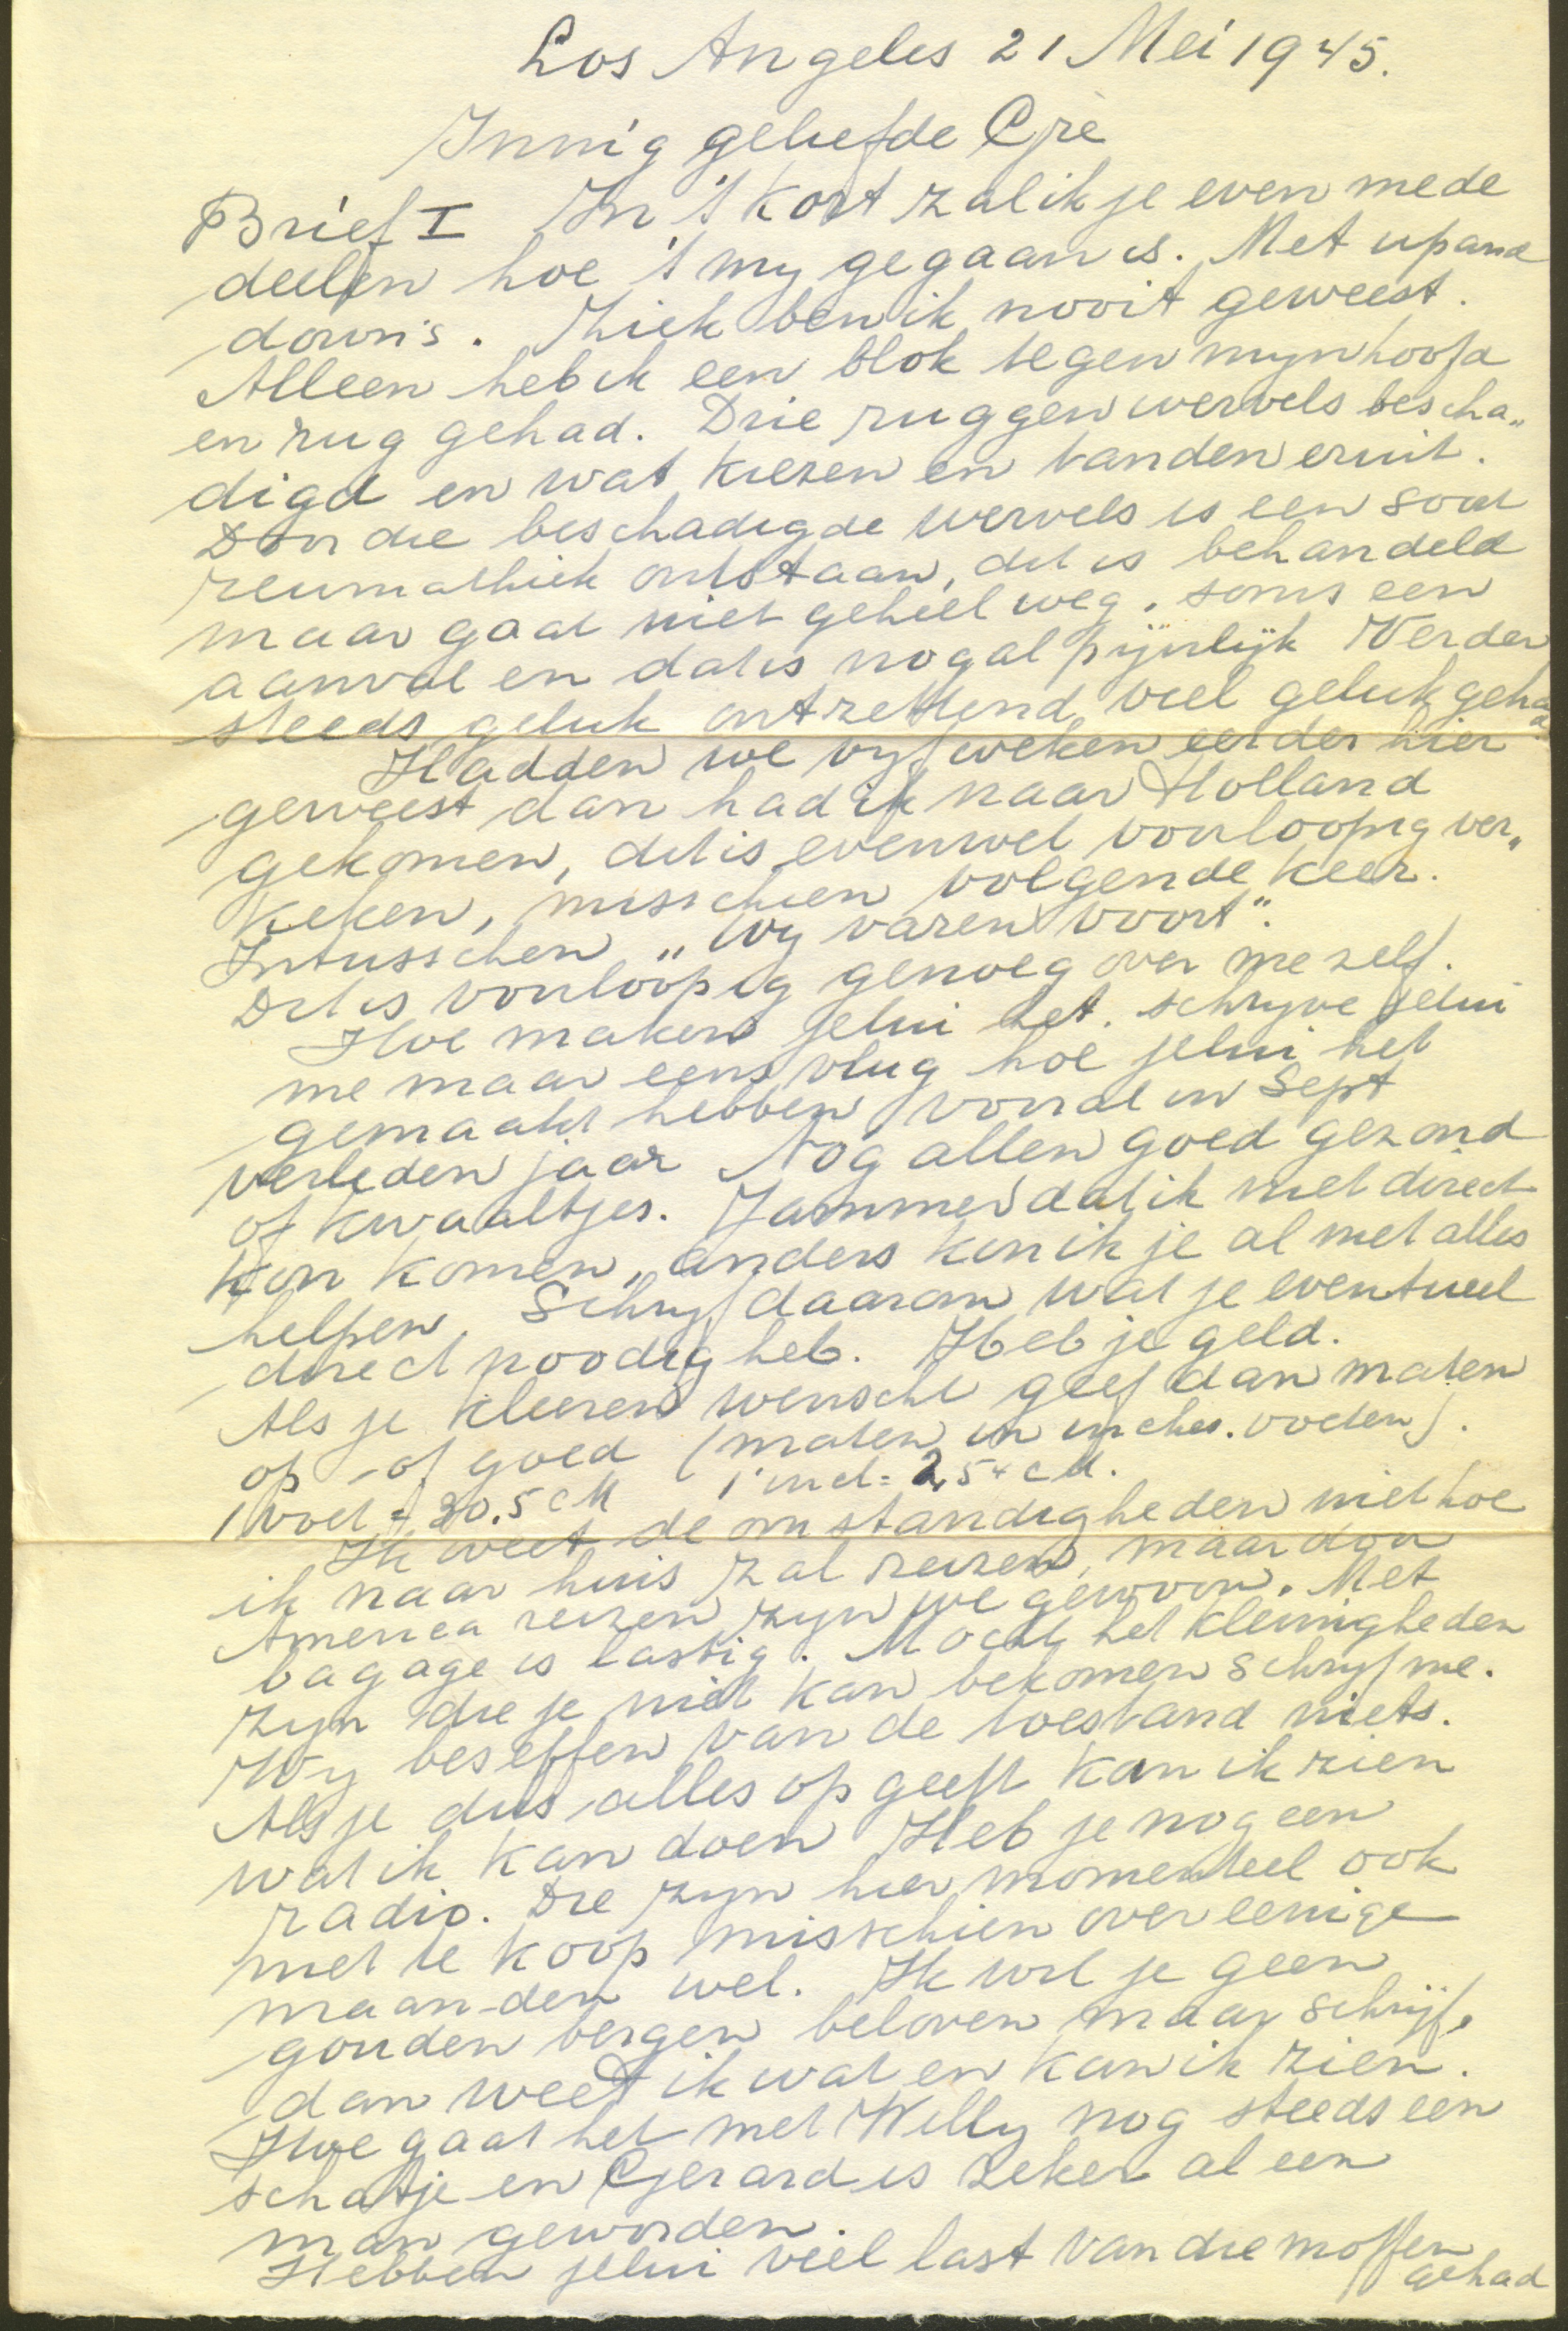 Los Angeles 21 Mei 1945.
Innig geliefde Gré
Brief I In 't kort zal ik je even mede
deelen hoe 't my gegaan is. Met up and
down's. Ziek ben ik nooit geweest.
Alleen heb ik een blok tegen mijn hoofd
en rug gehad. Drie ruggenwervels bescha„
digd en wat kiezen en tanden eruit.
Door die beschadigde wervels is een soort
reumathiek ontstaan, dit is behandeld
maar gaat niet geheel weg. soms een
aanval en dat is nogal pijnlijk Verder
steeds geluk ontzettend veel geluk gehad
Hadden we vyf weken eerder hier
geweest dan had ik naar Holland
gekomen, dit is evenwel voorloopig ver„
keken, misschien volgende keer.
Intusschen „Wy varen voort".
Dit is voorloopig genoeg over me zelf.
Hoe maken jelui het. schryve jelui
me maar eens vlug hoe jelui het
gemaakt hebben vooral in Sept
verleden jaar Nog allen goed gezond
of kwaaltjes. Jammer dat ik niet direct
kon komen, anders kon ik je al met alles
helpen. Schryf daarom wat je eventueel
direct noodig heb. Heb je geld.
Als je kleeren wenscht geef dan maten
op of goed (maten in inches. voeten).
1 voet = 30.5 cM 1 inch = 2,54 cM.
Ik weet de omstandigheden niet hoe
ik naar huis zal reizen, maar door
America reizen zyn we gewoon. Met
bagage is lastig. Mocht het kleinigheden
zyn die je niet kan bekomen schryf me.
Wy beseffen van de toestand niets.
Als je dus alles op geeft kan ik zien
wat ik kan doen Heb je nog een
radio. Die zyn hier momenteel ook
niet te koop misschien over eenige
maan-den wel. Ik wil je geen
gouden bergen beloven maar schrijf,
dan weet ik wat en kan ik zien.
Hoe gaat het met Willy nog steeds een
schatje en Gerard is zeker al een
man geworden.
Hebben jelui veel last van die moffen
gehad